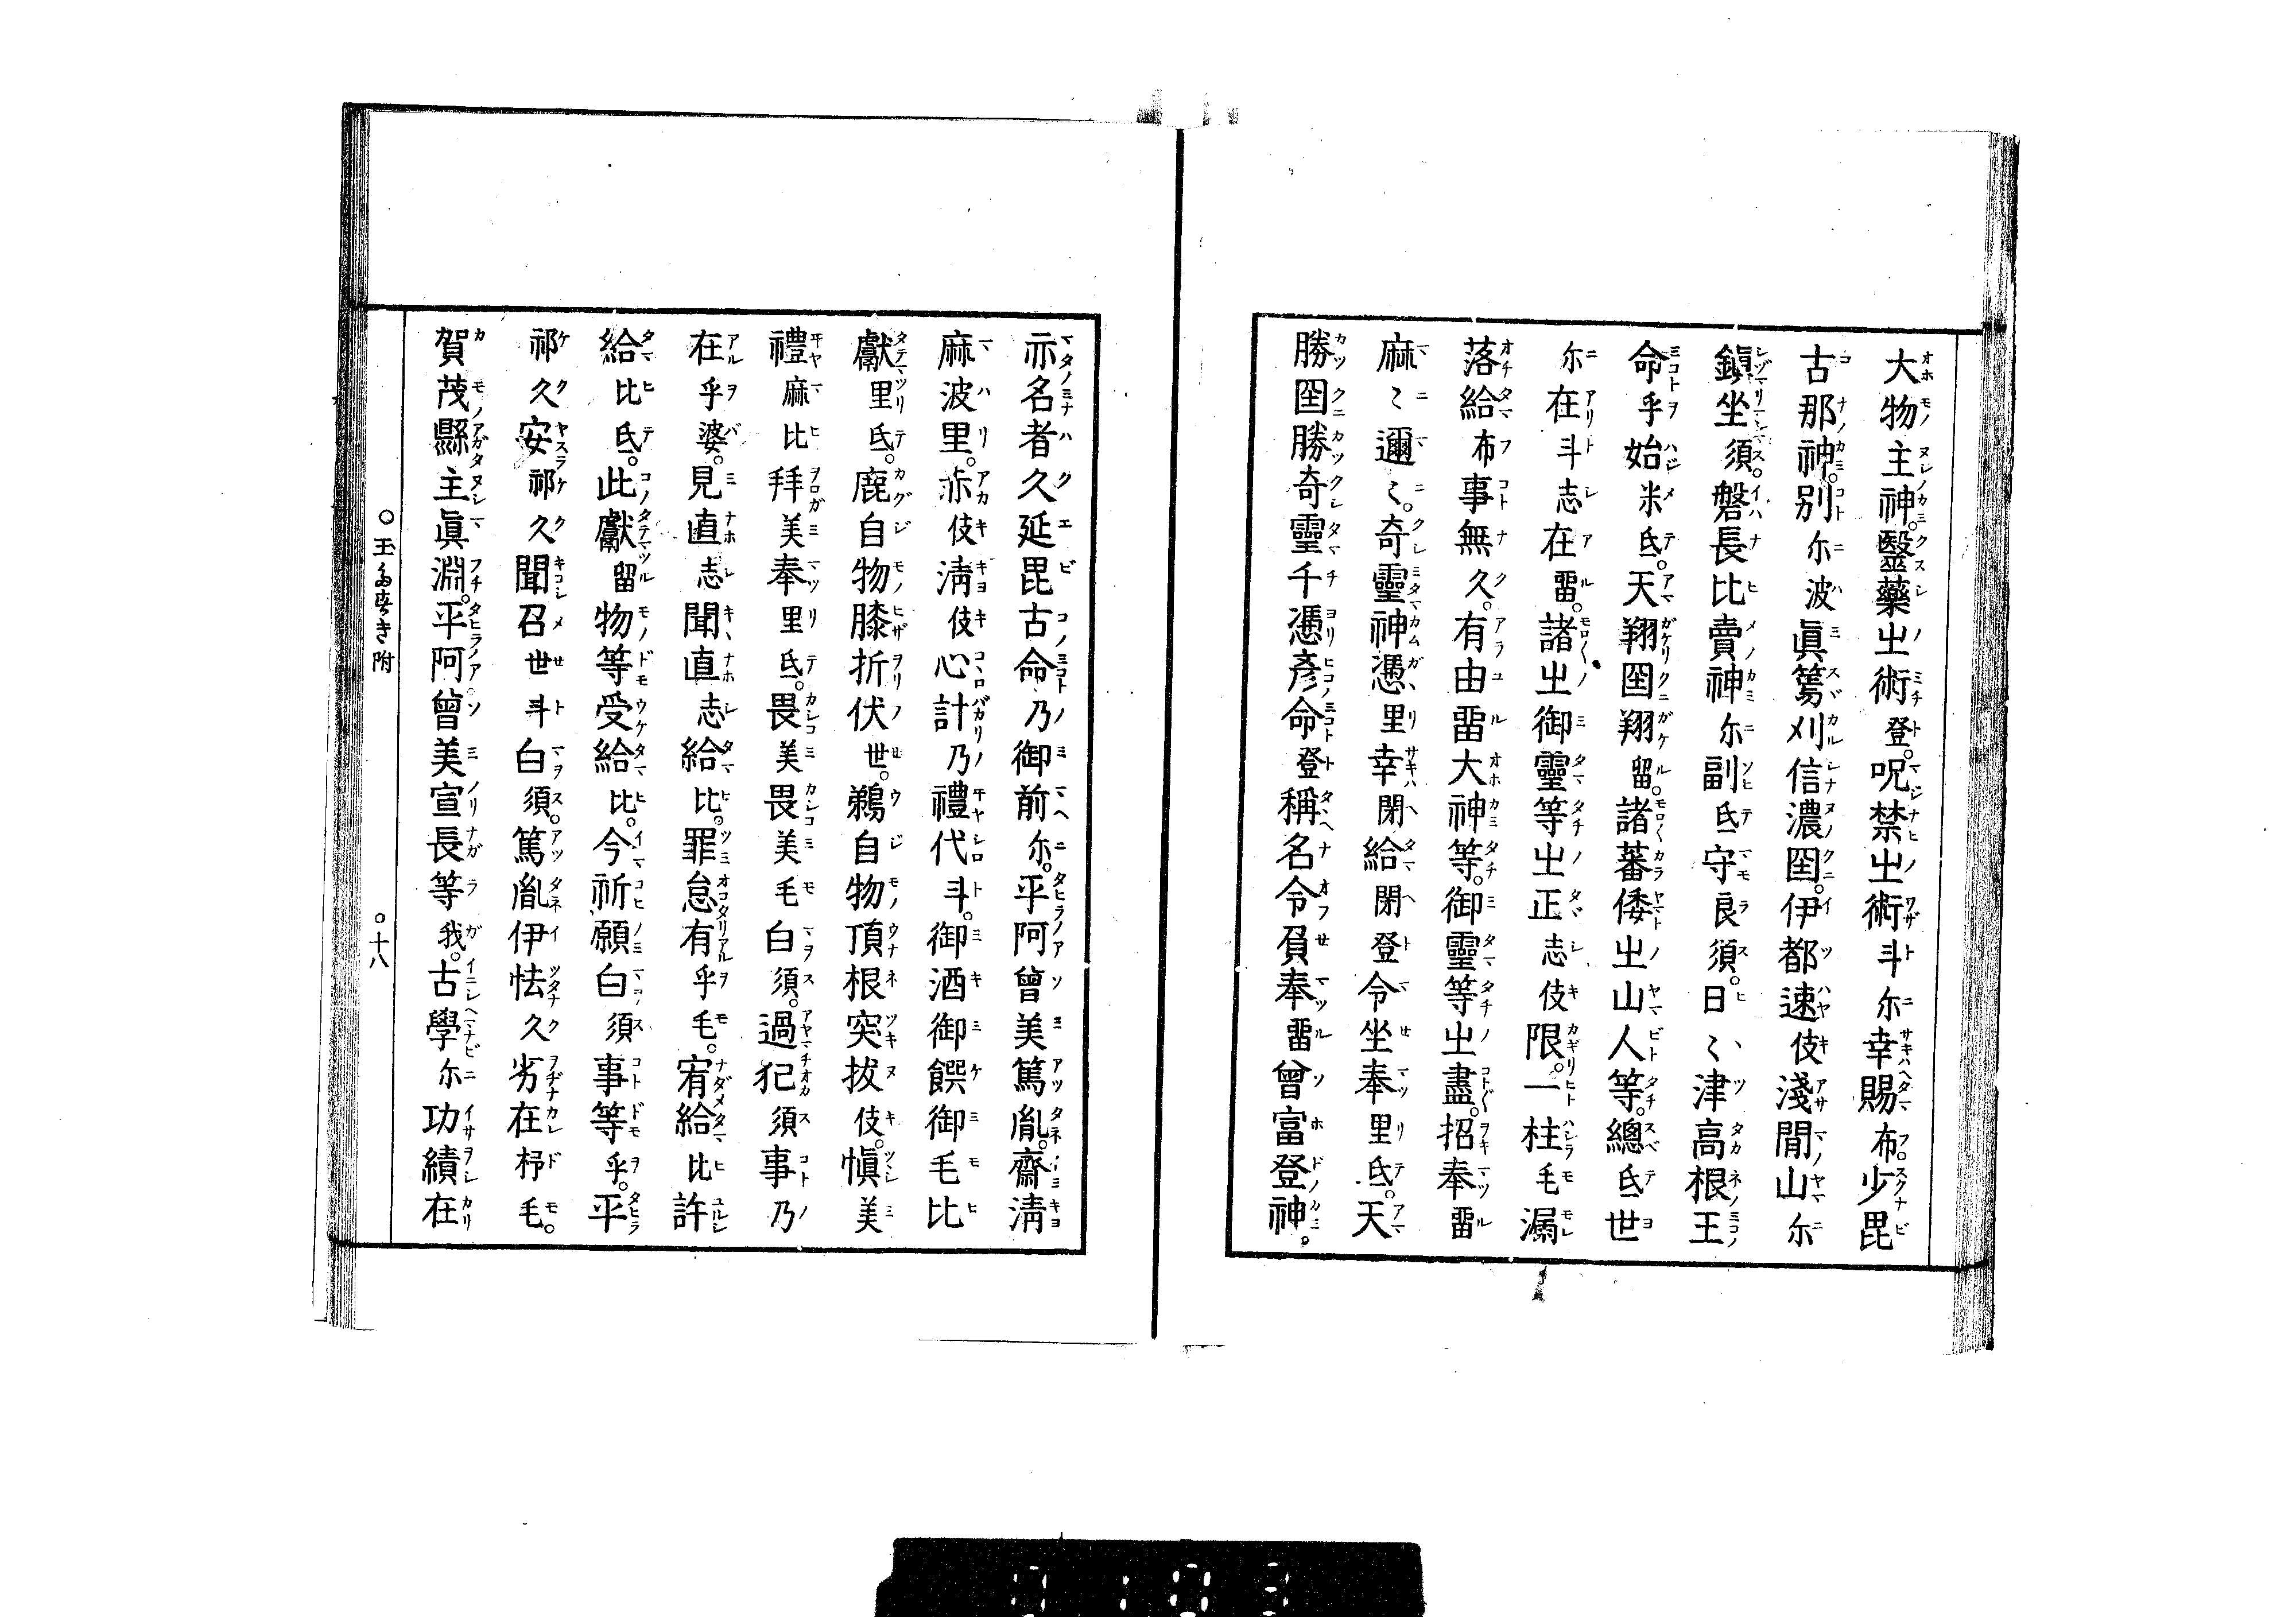 大物主神。醫藥㞢術登。呪禁㞢術斗尓幸賜布。少毘
古那神。別尓波眞篶刈信濃圀。伊都速伎淺閒山尓
鎭坐須。磐長比賣神尓副氐守良須。日〻津高根王
命乎始米氐。天翔圀翔留。諸蕃倭㞢山人等。總氐世
尓在斗志在畱。諸㞢御靈等㞢正志伎限。一柱毛漏
落給布事無久。有由畱大神等。御靈等㞢盡。招奉畱
麻〻邇〻。奇靈神憑里幸閇給閇登令坐奉里氐。天
勝圀勝奇靈千憑彦命登稱名令負奉畱曾富登神。
亦名者久延毘古命乃御前尓。平阿曾美篤胤。齋淸
麻波里。赤伎淸伎心計乃禮代斗。御酒御饌御毛比
獻里氐。鹿自物膝折伏世。鵜自物頂根突拔伎。愼美
禮麻比拜美奉里氐。畏美畏美毛白須。過犯須事乃
在乎婆。見直志聞直志給比。罪怠有乎毛。宥給比許
給比氐。此獻留物等受給比。今祈願白須事等乎。平
祁久安祁久聞召世斗白須。篤胤伊怯久劣在杼毛。
賀茂縣主眞淵。平阿曾美宣長等我。古學尓功績在
○玉多寸き附 ○十八